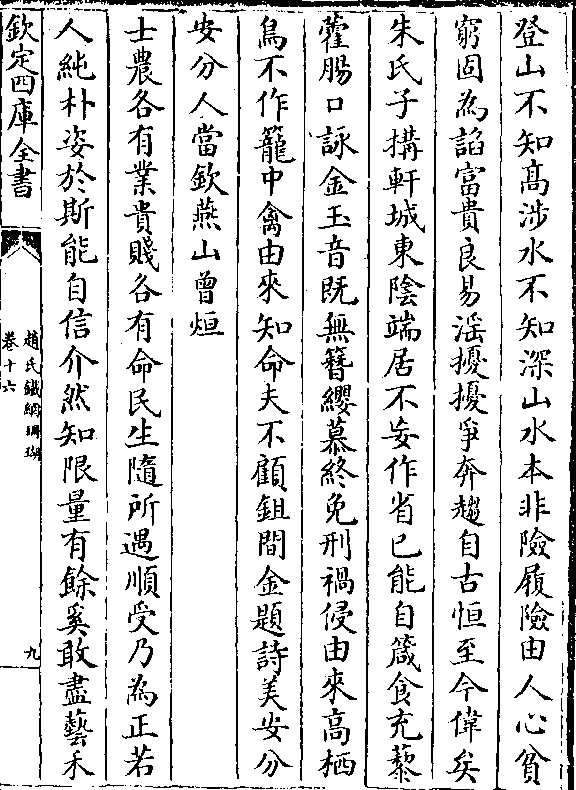 登山不知髙涉水不知深山水本非險履險由人心貧
窮固為謟富貴良易滛擾擾爭奔趨自古恒至今偉矣
朱氏子搆軒城東陰端居不妄作省已能自箴食充藜
藿腸口詠金玉音既無簪纓慕終免刑禍侵由來高栖
鳥不作籠中禽由來知命夫不顧鉏間金題詩美安分
安分人當欽燕山曾烜
士農各有業貴賤各有命民生隨所遇順受乃為正若
人純朴姿於斯能自信介然知限量有餘奚敢盡藝禾
欽定四庫全書
趙氏鐵網珊瑚
卷十六
九